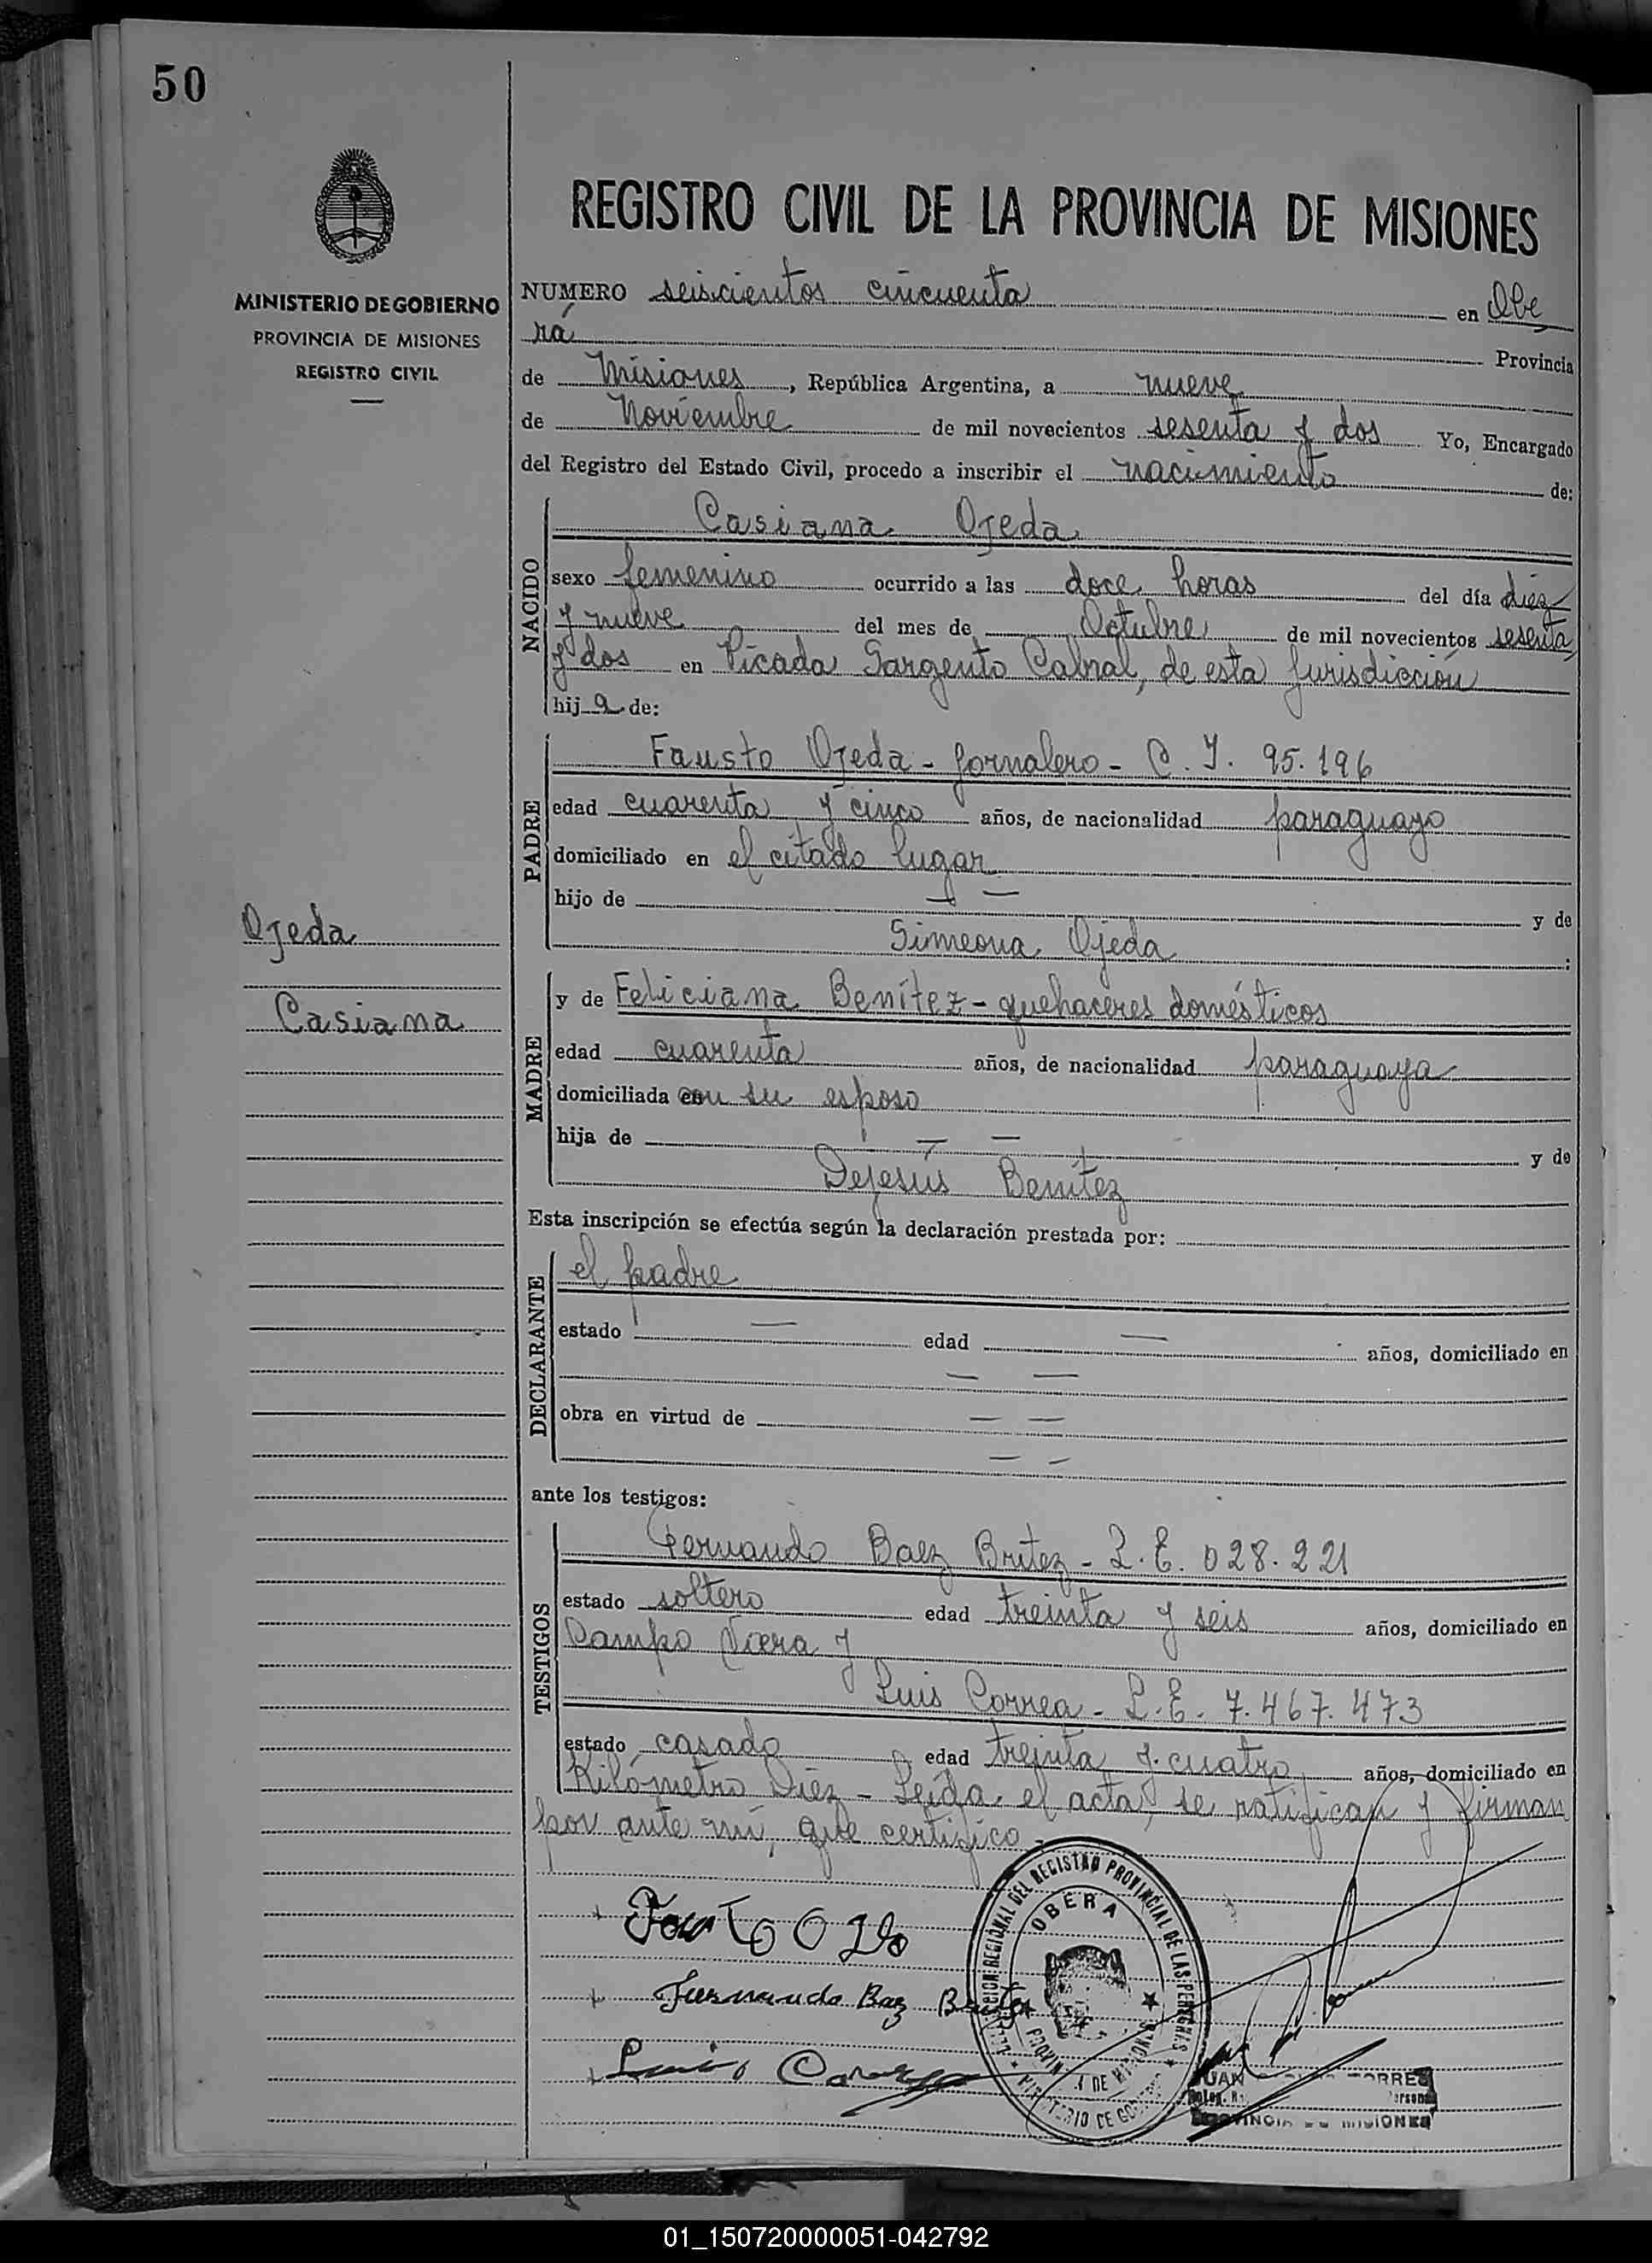 50
REGISTRO CIVIL DE LA PROVINCIA DE MISIONES
MINISTERIO DE GOBIERNO
PROVINCIA DE MISIONES
REGISTRO CIVIL
NUMERO seiscientos cincuenta en Obe
rá Provincia
de Misiones, República Argentina, a nueve
de Noviembre de mil novecientos sesenta y dos Yo, Encargado
del Registro del Estado Civil, procedo a inscribir el nacimiento de:
NACIDO
Casiana Ojeda
sexo femenino ocurrido a las doce horas del día diez
y nueve del mes de Octubre de mil novecientos sesenta
y dos en Picada Sargento Cabral, de esta Jurisdicción
hija de:
PADRE
Fausto Ojeda - Jornalero - C. I. 95.196
edad cuarenta y cinco años, de nacionalidad paraguayo
domiciliado en el citado lugar
hijo de — — y de
Simeona Ojeda :
Ojeda
Casiana
MADRE
y de Feliciana Benítez - quehaceres domésticos
edad cuarenta años, de nacionalidad paraguaya
domiciliada con su esposo
hija de — — y de
Dejesús Benítez
Esta inscripción se efectúa según la declaración prestada por:
DECLARANTE
el padre
estado — edad — años, domiciliado en
— —
obra en virtud de — —
— —
ante los testigos:
TESTIGOS
Fernando Baez Britez - L.E. 028.221
estado soltero edad treinta y seis años, domiciliado en
Campo Viera y
Luis Correa - L.E. 7.467.473
estado casado edad treinta y cuatro años, domiciliado en
Kilómetro Diez - Leída el acta, se ratifican y firman
por ante mí, que certifico -
Fernando Baez Britez
Luis Correa
REGIONAL DEL REGISTRO PROVINCIAL DE LAS PERSONAS
OBERA
DE MISIONES
JUAN TORRES
PROVINCIA DE MISIONES
01_150720000051-042792